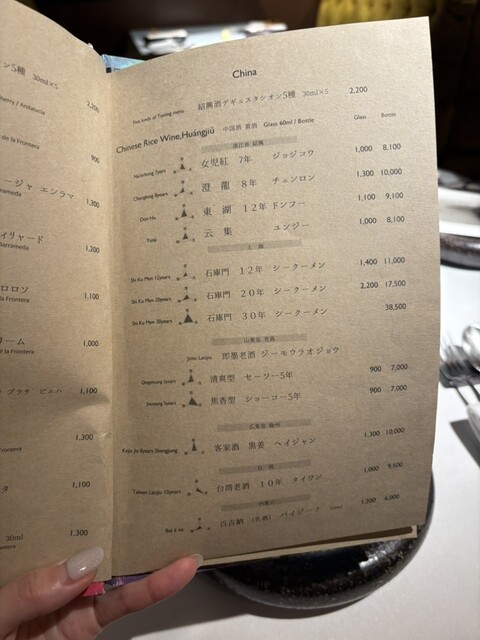 ン5種 30ml×5
2,200
berry / Andalucia
de la Frontera
900
ージャ エンラマ
rameda
1,300
ィリャード
barrameda
1,200
ロロソ
la Frontera
1,100
リーム
la Frontera
1,000
プラサ ビエハ
1,100
Frontera
1,300
タ
1,100
30ml
ntera
1,300
China
Five kinds of Tasting menu 紹興酒デギュスタシオン5種 30ml×5 2,200
Chinese Rice Wine,Huángjiǔ 中国酒 黄酒 Glass 60ml / Bottle Glass Bottle
浙江省 紹興
女児紅 7年 ジョジコウ 1,000 8,100
Chenglong 8years 澄龍 8年 チェンロン 1,300 10,000
Don Hu 東湖 12年 ドンフー 1,100 9,100
云集 ユンジー 1,000 8,100
上海
Shi Ku Men 12years 石庫門 12年 シークーメン 1,400 11,000
Shi Ku Men 20years 石庫門 20年 シークーメン 2,200 17,500
Shi Ku Men 30years 石庫門 30年 シークーメン 38,500
山東省 青島
Jimo Laojiu 即墨老酒 ジーモウラオジョウ
清爽型 セーソー5年 900 7,000
焦香型 ショーコー5年 900 7,000
客家酒 黒姜 ヘイジャン 1,300 10,000
台湾
Taiwan Laojiu 10years 台湾老酒 10年 タイワン 1,000 9,500
百吉納 (乳酒) バイジーナ 1,300 6,000